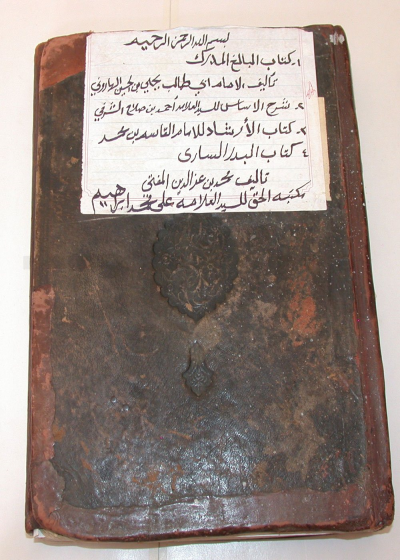 بسم الله الرحمن الرحيم
١ـ كتاب البالغ المدرك
تأليف الامام ابي طالب يحيى بن الحسين الهاروني
٢ـ شرح الاساس للسيد العلامه أحمد بن صلاح الشرفي
٣ـ كتاب الأرشاد للامام القاسم بن محمد
٤ كتاب البدر السارى
تأليف محمد بن عز الدين المفتي
مكتبه الحق للسيد العلامه علي محمد ابراهيم